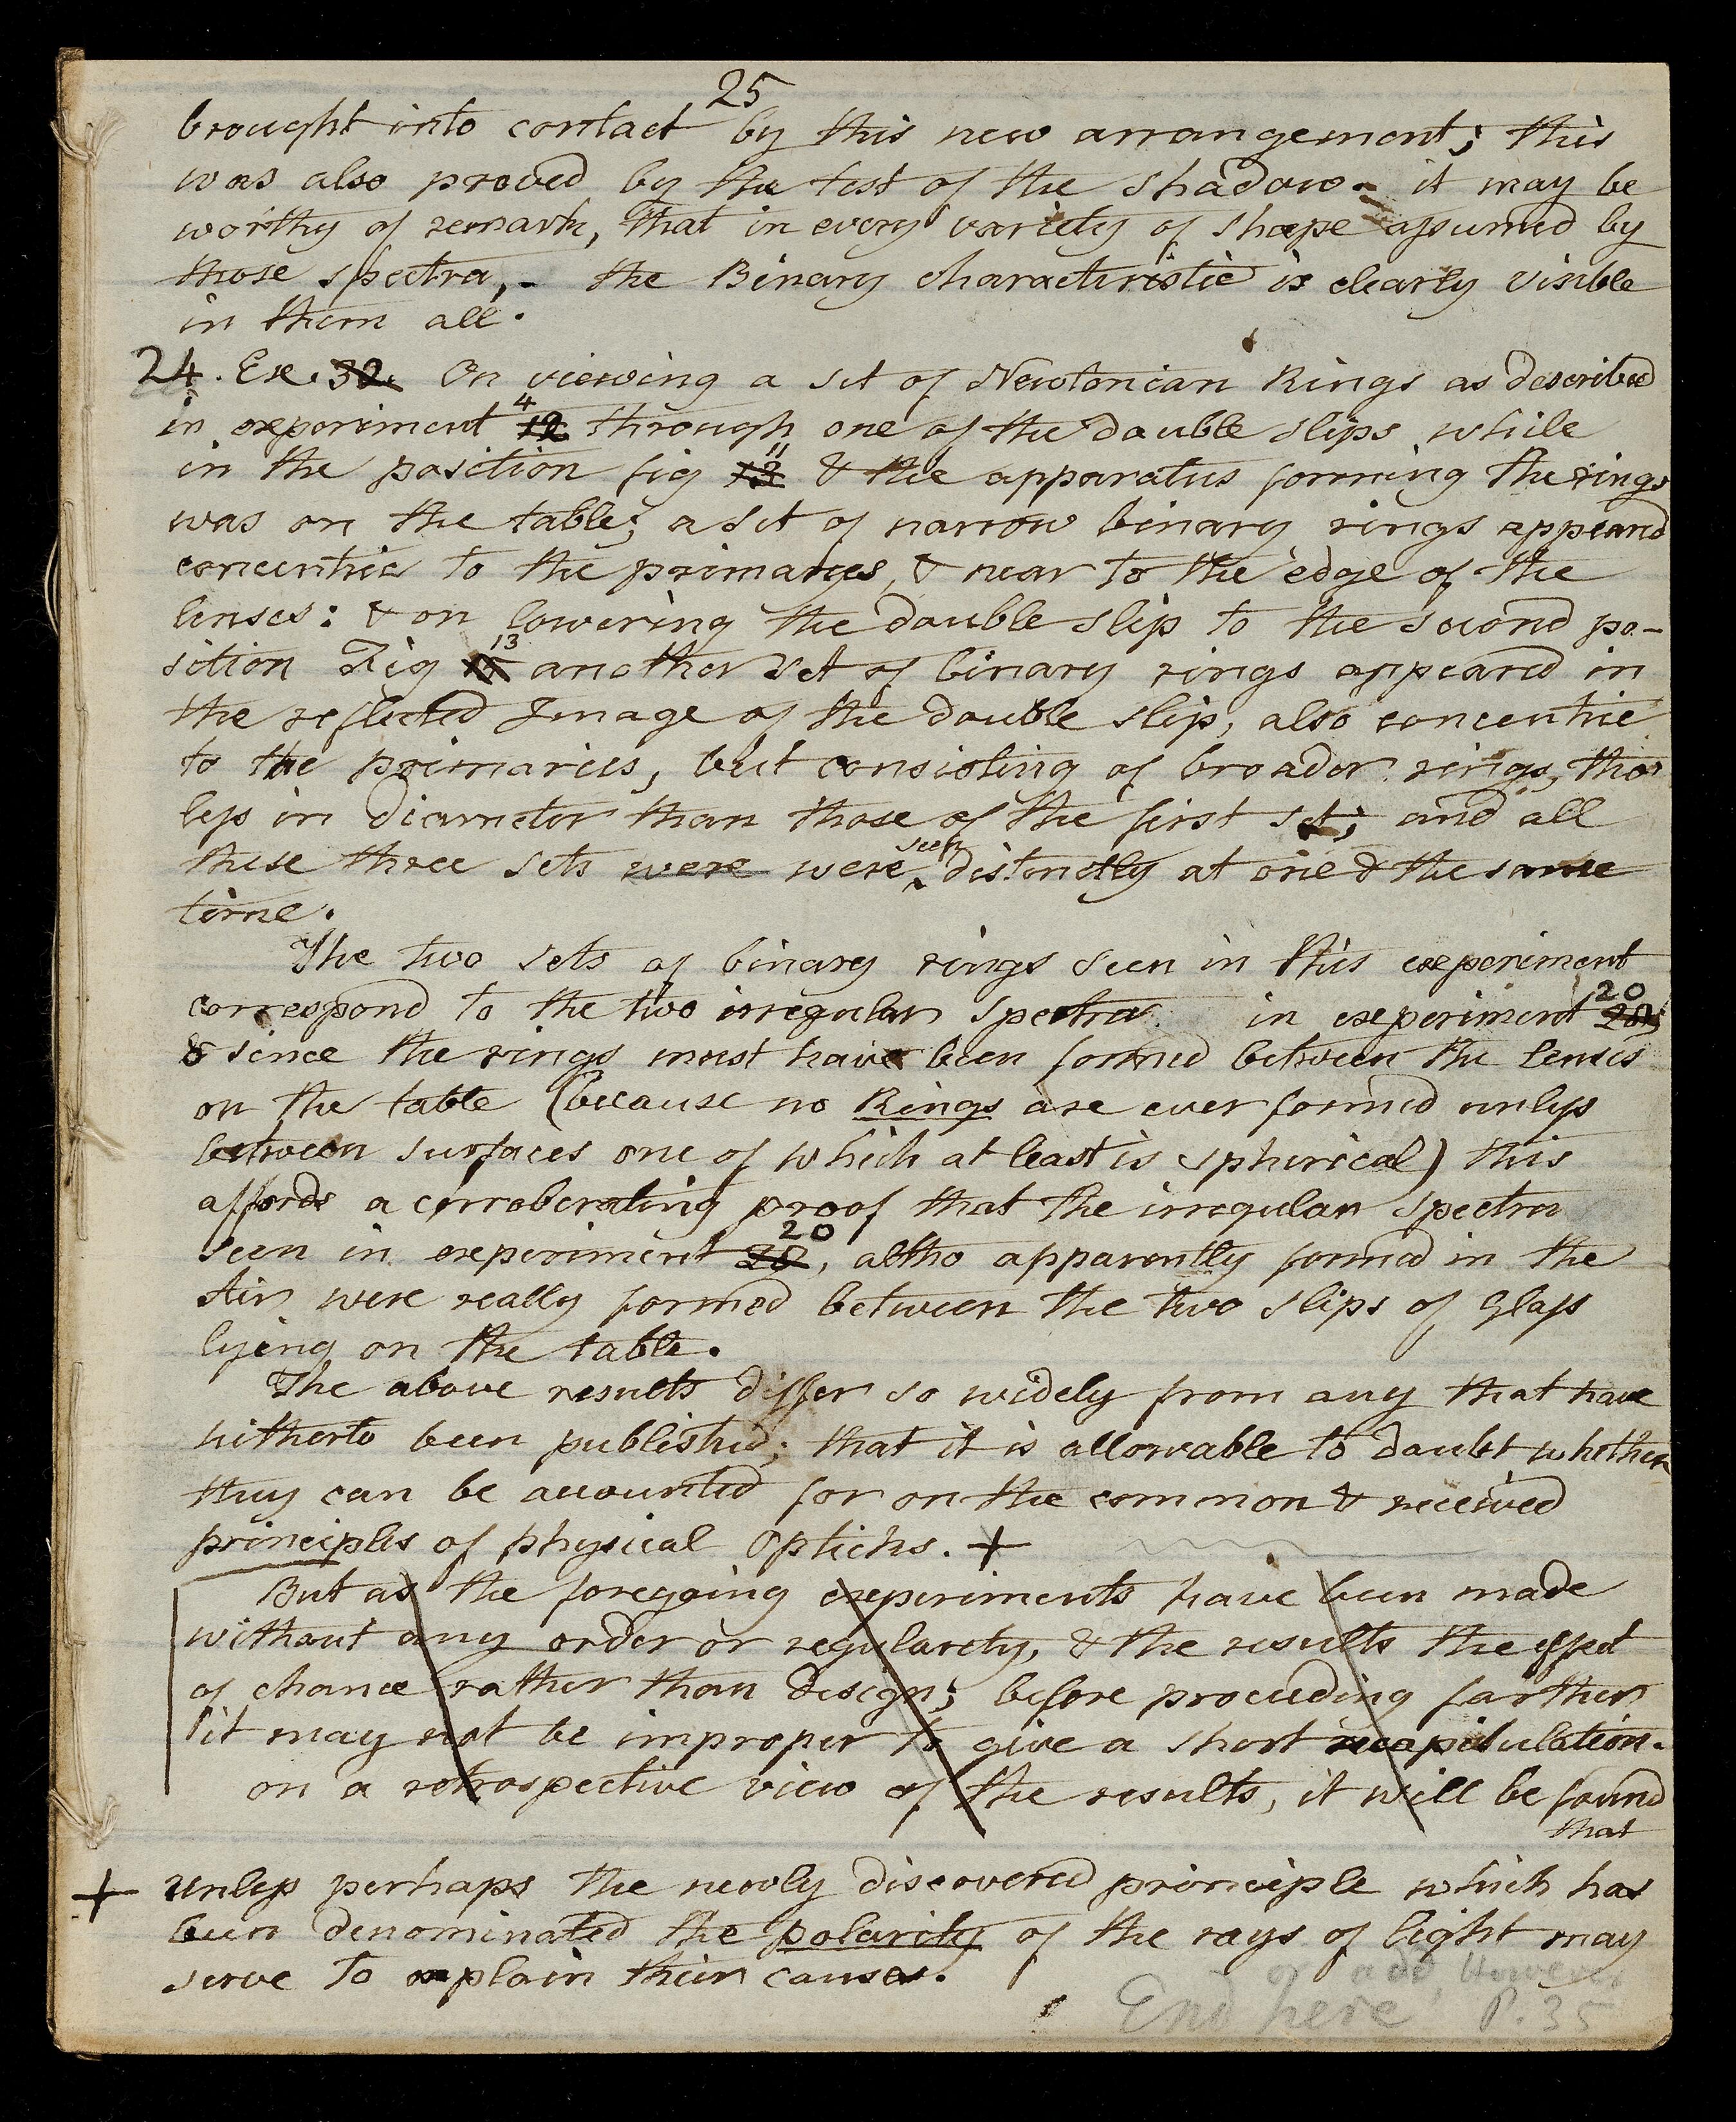 25
brought into contact by this new arrangement; this
was also proved by the test of the shadow - it may be
worthy of remark, that in every variety of shape assumed by
those spectra, - the Binary characteristic is clearly visible
in them all.
24. Ex. 32. On viewing a set of Newtonian Rings as described
in experiment 12 4 through one of the double slips while
in the position fig 13 11 & the apparatus forming the rings
was on the table; a set of narrow binary rings appeard
concentric to the primaryes, & near to the edge of the
lenses: & on lowering the double slip to the second po-
sition Fig 13 another set of binary rings appeared in
the reflected Image of the double slip, also concentric
to the primaries, but consisting of broader rings, tho
less in diameter than those of the first set; and all
these three sets were were seen distinctly at one & the same
time.
The two sets of binary rings seen in this experiment
correspond to the two irregular spectra in experiment 28 20
& since the rings must have been formed between the lenses
on the table (because no Rings are ever formed unless
between surfaces one of which at least is spherical) this
affords a corroberating proof that the irregular spectra
seen in experiment 28 20, altho apparently formed in the
Air were really formed between the two slips of Glass
lying on the table.
The above results differ so widely from any that have
hitherto been published; that it is allowable to doubt whether
they can be accounted for on the common & received
principles of physical Opticks. +
But as the foregoing experiments have been made
without any order or regularity, & the results the effect
of chance rather than design; before proceeding farther
it may not be improper to give a short recapitulation.
on a retrospective view of the results, it will be found
that
+ unless perhaps the newly discovered principle which has
been denominated the polarity of the rays of light may
serve to explain their causes.
or add However
End here P. 35